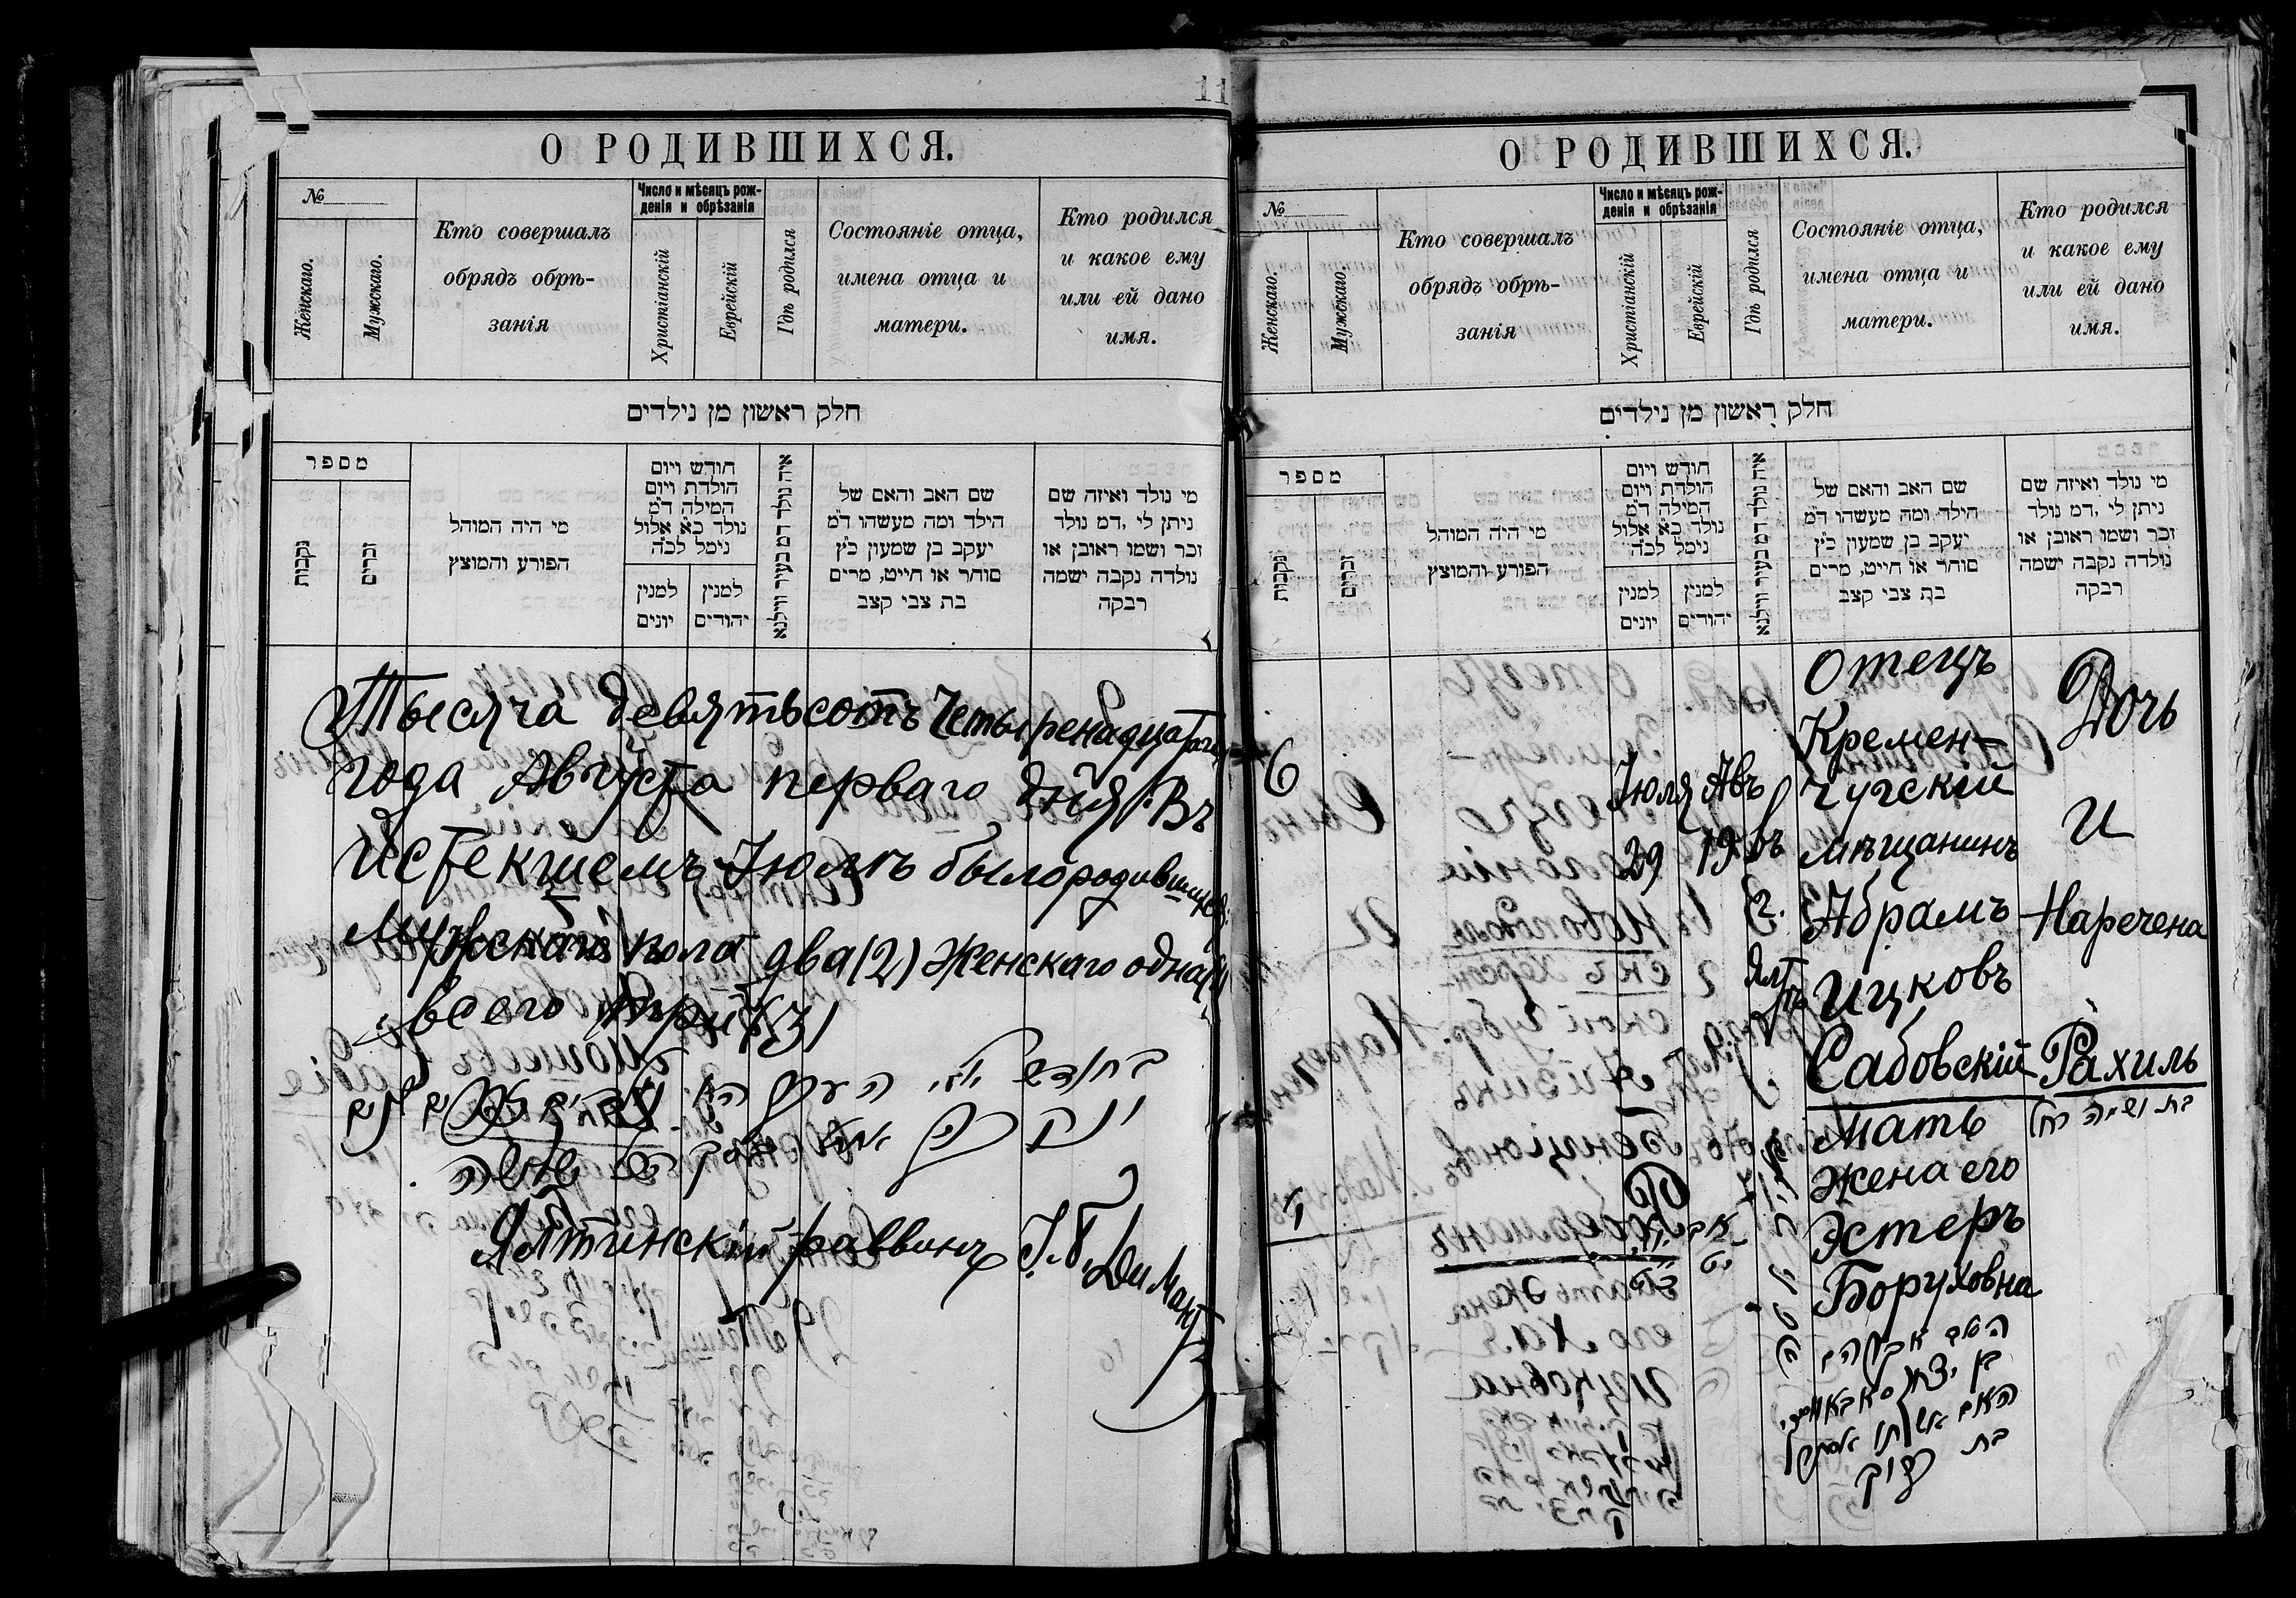 11
О РОДИВШИХСЯ.
№
Женскаго.
Мужскаго.
Кто совершалъ
обрядъ обрѣ-
занія
Число и мѣсяцъ рож-
денія и обрѣзанія
Христіанскій
Еврейскій
Гдѣ родился
Состояніе отца,
имена отца и
матери.
Кто родился
и какое ему
или ей дано
имя.
חלק ראשון מן נילדים
מספר
נקבות
זכרים
מי היה המוהל
הפורע והמוצץ
חודש ויום
הולדת ויום
המילה ד״מ
נולד כ״א אלול
נימל לכ״ה
למנין
יונים
למנין
יהודים
איה נולד דמ בעיר ווילנא
שם האב והאם של
הילד ומה מעשהו ד״מ
יעקב בן שמעון כ״ץ
סוחר או חייט, מרים
בת צבי קצב
מי נולד ואיזה שם
ניתן לי ,דמ נולד
זכר ושמו ראובן או
נולדה נקבה ישמה
רבקה
Тысяча девятьсотъ четыренадцатаго
года Августа перваго дня. Въ
Истекшемъ Юлѣ было родившихся:
Мужскаго пола два (2) Женскаго одна
всего три (3)
Ялтинскій раввинъ
О РОДИВШИХСЯ.
№
Женскаго.
Мужскаго.
Кто совершалъ
обрядъ обрѣ-
занія
Число и мѣсяцъ рож-
денія и обрѣзанія
Христіанскій
Еврейскій
Гдѣ родился
Состояніе отца,
имена отца и
матери.
Кто родился
и какое ему
или ей дано
имя.
חלק ראשון מן נילדים
מספר
נקבות
זכרים
מי היה המוהל
הפורע והמוצץ
חודש ויום
הולדת ויום
המילה ד״מ
נולד כ״א אלול
נימל לכ״ה
למנין
יונים
למנין
יהודים
איה נולד דמ בעיר ווילנא
שם האב והאם של
הילד ומה מעשהו ד״מ
יעקב בן שמעון כ״ץ
סוחר או חייט, מרים
בת צבי קצב
מי נולד ואיזה שם
ניתן לי ,דמ נולד
זכר ושמו ראובן או
נולדה נקבה ישמה
רבקה
6
ו
Іюля
29
Авъ
19
въ
г.
Ялтѣ
Отецъ
Кремен-
чугскій
мѣщанинъ
Абрамъ
Ицковъ
Сабовскій
мать
жена его
Эстеръ
Боруховна
האב אברהם
בן יצחק סאבאווסקי
האם אשתו אסתר
בת ברוך
Дочь
и
Наречена
Рахиль
בת ושמה רחל